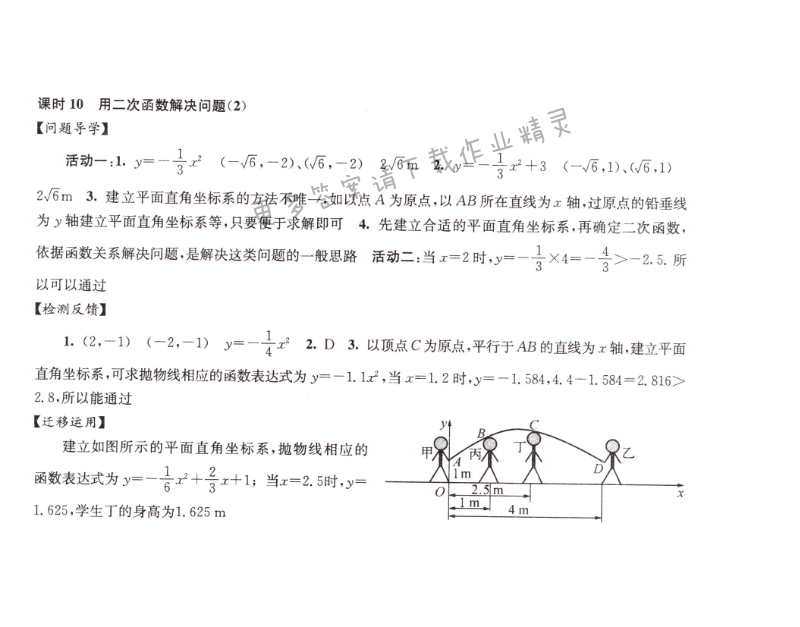 课时 10 用二次函数解决问题(2)
【问题导学】
活动一:1. y=-1/3x² (-√6,-2)、(√6,-2) 2√6m 2. y=-1/3x²+3 (-√6,1)、(√6,1)
2√6m 3. 建立平面直角坐标系的方法不唯一,如以点 A 为原点,以 AB 所在直线为 x 轴,过原点的铅垂线
为 y 轴建立平面直角坐标系等,只要便于求解即可 4. 先建立合适的平面直角坐标系,再确定二次函数,
依据函数关系解决问题,是解决这类问题的一般思路 活动二:当 x=2 时,y=-1/3×4=-4/3>-2.5. 所
以可以通过
【检测反馈】
1. (2,-1) (-2,-1) y=-1/4x² 2. D 3. 以顶点 C 为原点,平行于 AB 的直线为 x 轴,建立平面
直角坐标系,可求抛物线相应的函数表达式为 y=-1.1x²,当 x=1.2 时,y=-1.584,4.4-1.584=2.816>
2.8,所以能通过
【迁移运用】
建立如图所示的平面直角坐标系,抛物线相应的
函数表达式为 y=-1/6x²+2/3x+1; 当x=2.5时,y=
1.625,学生丁的身高为1.625 m
y
甲 A B 丙 丁 C D 乙
1m
O x
2.5 m
1 m
4 m
更多答案请下载作业精灵